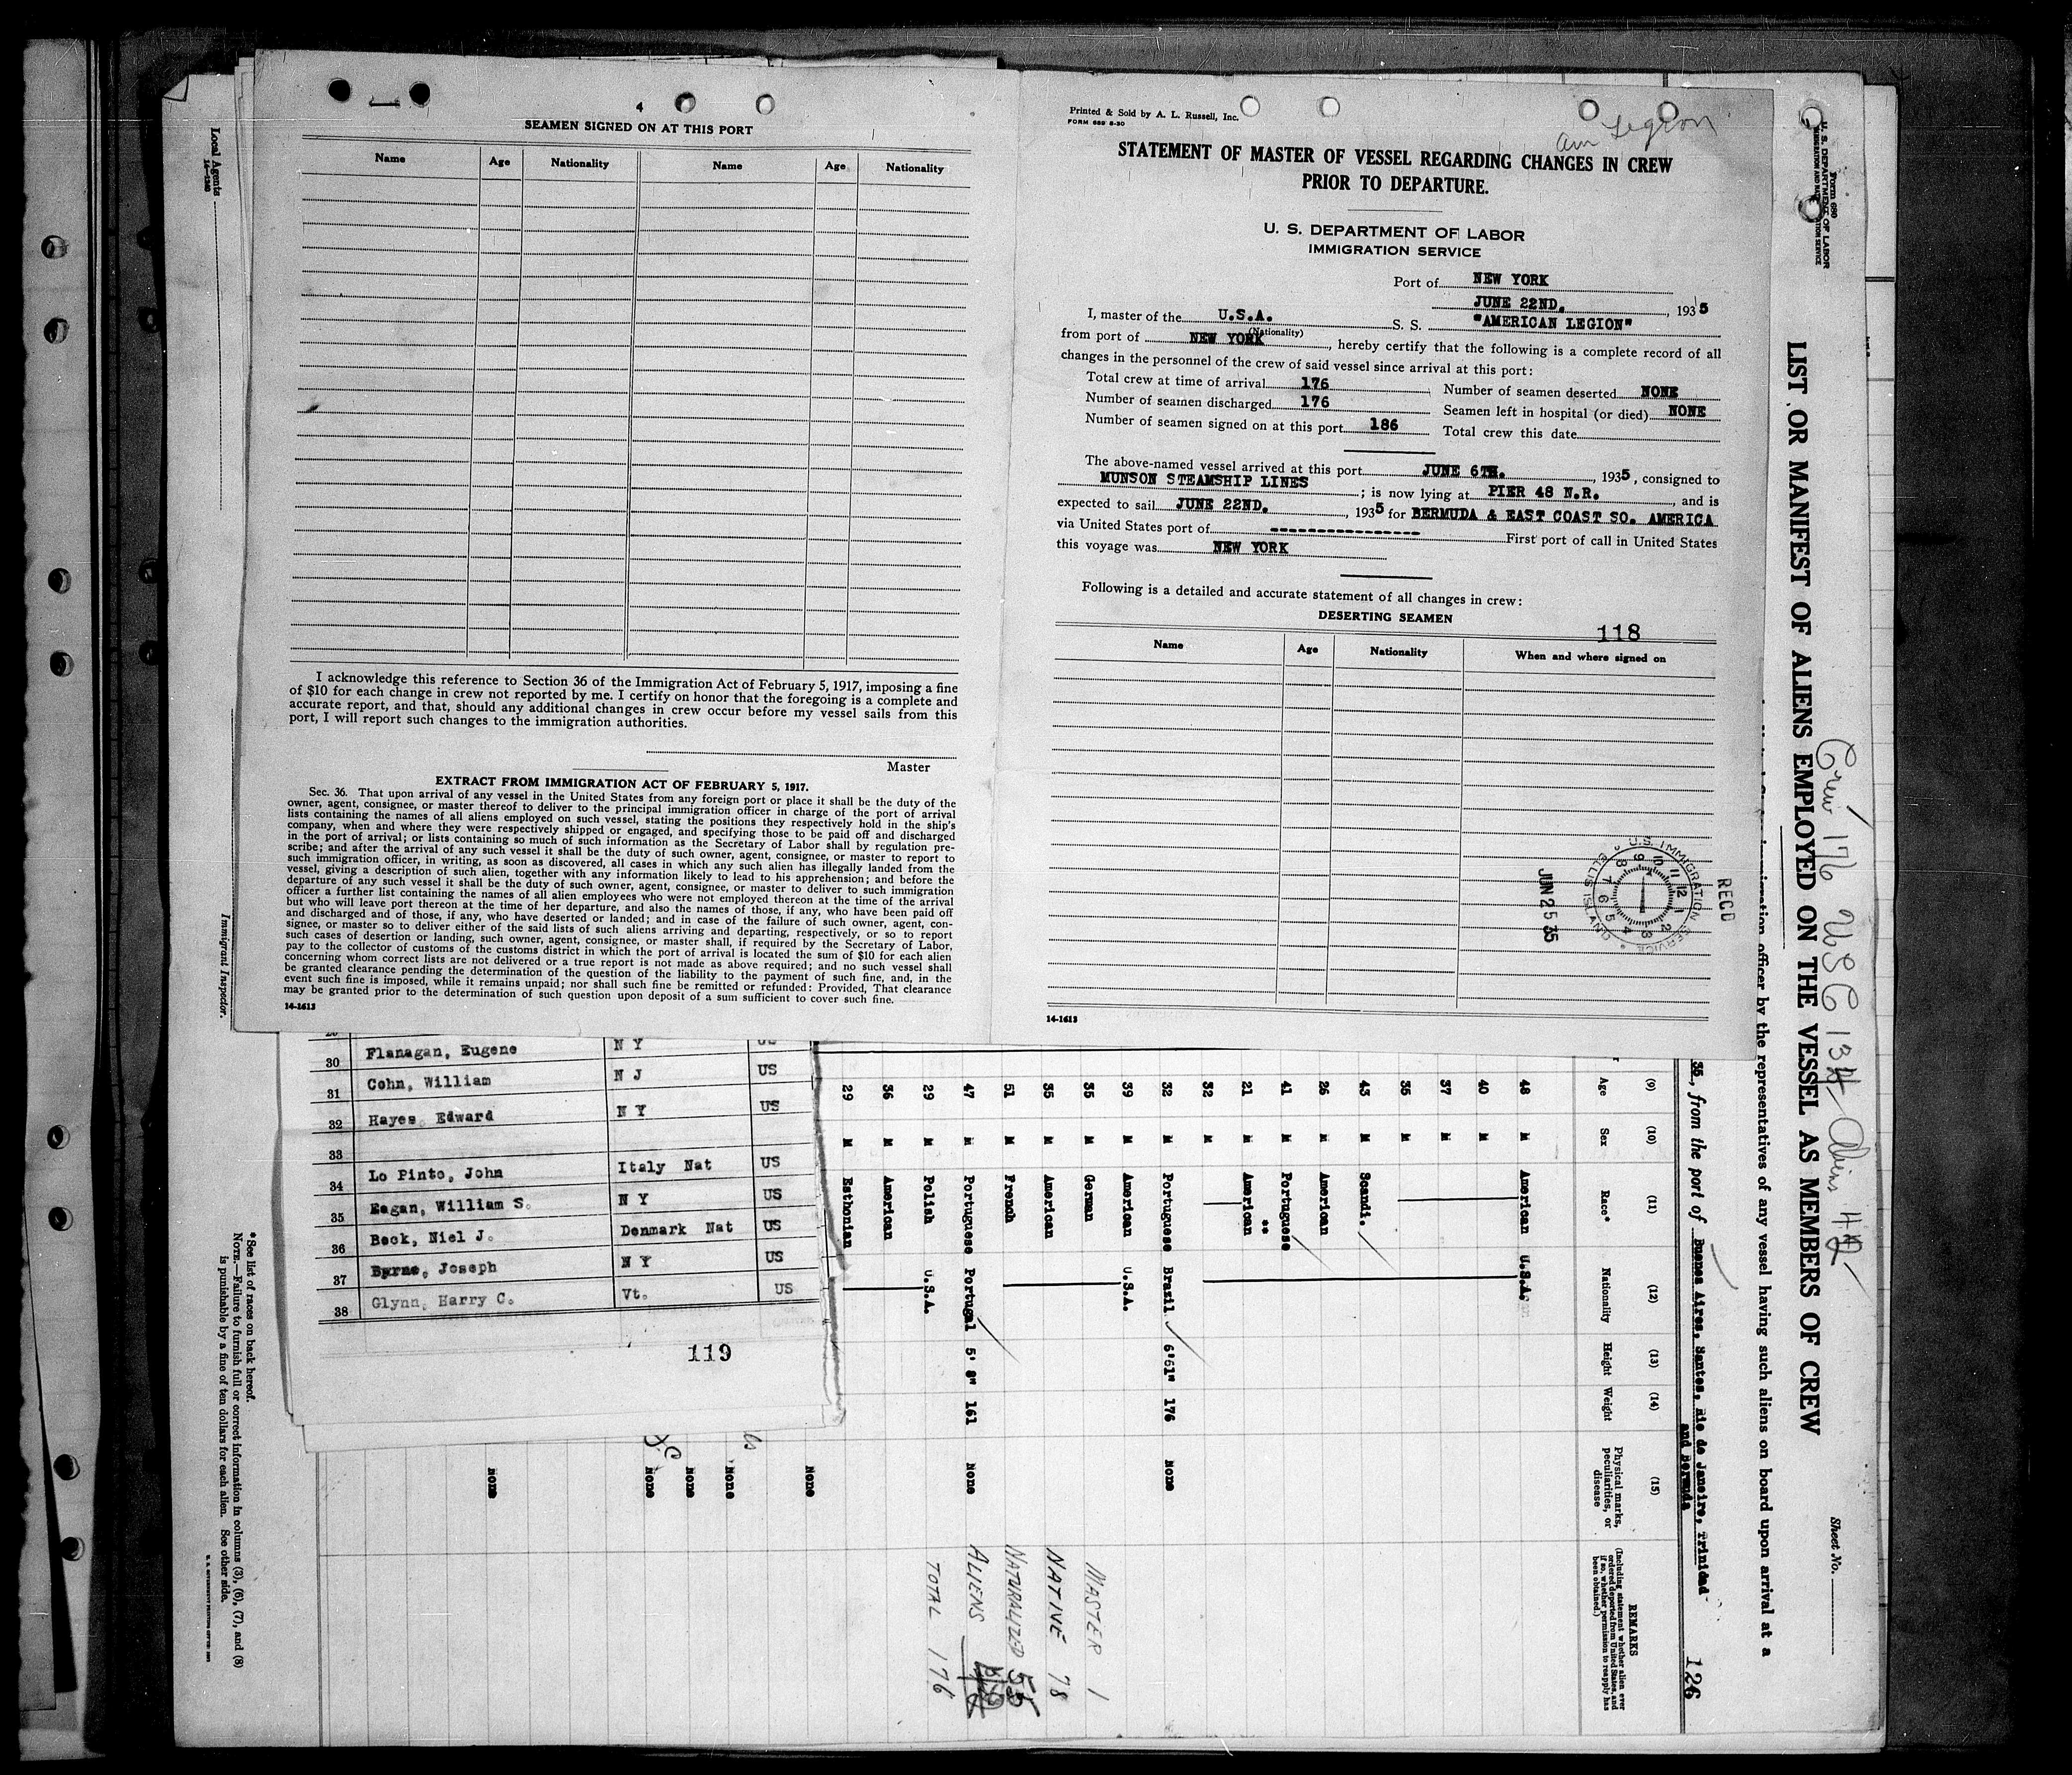 4
SEAMEN SIGNED ON AT THIS PORT
Name Age Nationality Name Age Nationality
I acknowledge this reference to Section 36 of the Immigration Act of February 5, 1917, imposing a fine
of $10 for each change in crew not reported by me. I certify on honor that the foregoing is a complete and
accurate report, and that, should any additional changes in crew occur before my vessel sails from this
port, I will report such changes to the immigration authorities.
Master
EXTRACT FROM IMMIGRATION ACT OF FEBRUARY 5, 1917.
Sec. 36. That upon arrival of any vessel in the United States from any foreign port or place it shall be the duty of the
owner, agent, consignee, or master thereof to deliver to the principal immigration officer in charge of the port of arrival
lists containing the names of all aliens employed on such vessel, stating the positions they respectively hold in the ship's
company, when and where they were respectively shipped or engaged, and specifying those to be paid off and discharged
in the port of arrival; or lists containing so much of such information as the Secretary of Labor shall by regulation pre-
scribe; and after the arrival of any such vessel it shall be the duty of such owner, agent, consignee, or master to report to
such immigration officer, in writing, as soon as discovered, all cases in which any such alien has illegally landed from the
vessel, giving a description of such alien, together with any information likely to lead to his apprehension; and before the
departure of any such vessel it shall be the duty of such owner, agent, consignee, or master to deliver to such immigration
officer a further list containing the names of all alien employees who were not employed thereon at the time of the arrival
but who will leave port thereon at the time of her departure, and also the names of those, if any, who have been paid off
and discharged and of those, if any, who have deserted or landed; and in case of the failure of such owner, agent, con-
signee, or master so to deliver either of the said lists of such aliens arriving and departing, respectively, or so to report
such cases of desertion or landing, such owner, agent, consignee, or master shall, if required by the Secretary of Labor,
pay to the collector of customs of the customs district in which the port of arrival is located the sum of $10 for each alien
concerning whom correct lists are not delivered or a true report is not made as above required; and no such vessel shall
be granted clearance pending the determination of the question of the liability to the payment of such fine, and, in the
event such fine is imposed, while it remains unpaid; nor shall such fine be remitted or refunded: Provided, That clearance
may be granted prior to the determination of such question upon deposit of a sum sufficient to cover such fine.
14-1613
Printed & Sold by A. L. Russell, Inc.
FORM 689 6-30
Am Legion
STATEMENT OF MASTER OF VESSEL REGARDING CHANGES IN CREW
PRIOR TO DEPARTURE.
U. S. DEPARTMENT OF LABOR
IMMIGRATION SERVICE
Port of NEW YORK
JUNE 22ND. , 1935
I, master of the U.S.A. S. S. "AMERICAN LEGION"
(Nationality)
from port of NEW YORK , hereby certify that the following is a complete record of all
changes in the personnel of the crew of said vessel since arrival at this port:
Total crew at time of arrival 176 Number of seamen deserted NONE
Number of seamen discharged 176 Seamen left in hospital (or died) NONE
Number of seamen signed on at this port 186 Total crew this date
The above-named vessel arrived at this port JUNE 6TH. , 1935, consigned to
MUNSON STEAMSHIP LINES ; is now lying at PIER 48 N.R. , and is
expected to sail JUNE 22ND. , 1935 for BERMUDA & EAST COAST SO. AMERICA
via United States port of --------------- First port of call in United States
this voyage was NEW YORK
Following is a detailed and accurate statement of all changes in crew:
DESERTING SEAMEN
118
Name Age Nationality When and where signed on
RECD
U.S. IMMIGRATION SERVICE
ELLIS ISLAND
JUN 25 35
14-1613
30 Flanagan, Eugene N Y US
31 Cohn, William N J US
32 Hayes, Edward N Y US
33
34 Lo Pinto, John Italy Nat US
35 Eagan, William S. N Y US
36 Beck, Niel J. Denmark Nat US
37 Byrne, Joseph N Y US
38 Glynn, Harry C. Vt. US
119
Form 680
U. S. DEPARTMENT OF LABOR
IMMIGRATION AND NATURALIZATION SERVICE
Sheet No.
Crew 176 USC 134 Aliens 42
LIST OR MANIFEST OF ALIENS EMPLOYED ON THE VESSEL AS MEMBERS OF CREW
immigration officer by the representatives of any vessel having such aliens on board upon arrival at a
35, from the port of Buenos Aires, Santos, Rio de Janeiro, Trinidad
and Bermuda
126
(9) (10) (11) (12) (13) (14) (15)
Age Sex Race* Nationality Height Weight Physical marks, peculiarities, or disease
REMARKS
(Including statement whether alien ever
ordered deported from United States, and
if so, whether permission to reapply has
been obtained.)
48 M American U.S.A.
40 M
37 M
35 M
43 M Scandi.
26 M American
41 M Portuguese
21 M American
32 M
32 M Portuguese Brazil 176 None
39 M American U.S.A.
35 M German
35 M American
51 M French
47 M Portuguese Portugal 5' 8" 161 None
29 M Polish U.S.A.
36 M American
29 M Esthonian
None
None
None
None
None
MASTER 1
NATIVE 78
NATURALIZED 55
ALIENS
TOTAL 176
*See list of races on back hereof.
NOTE.—Failure to furnish full or correct information in columns (3), (6), (7), and (8)
is punishable by a fine of ten dollars for each alien. See other side.
Local Agents
14-1240
Immigrant Inspector.